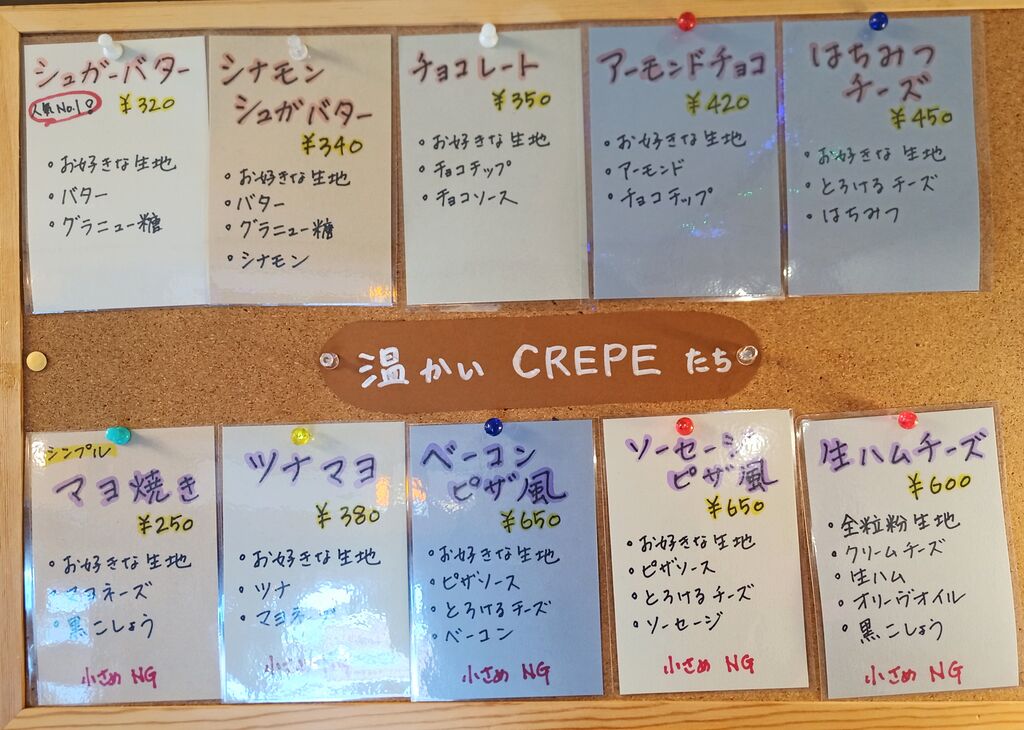 シュガーバター
人気No.1!
¥320
・お好きな生地
・バター
・グラニュー糖
シナモン
シュガバター
¥340
・お好きな生地
・バター
・グラニュー糖
・シナモン
チョコレート
¥350
・お好きな生地
・チョコチップ
・チョコソース
アーモンドチョコ
¥420
・お好きな生地
・アーモンド
・チョコチップ
はちみつ
チーズ
¥450
・お好きな生地
・とろけるチーズ
・はちみつ
温かい CREPE たち
シンプル
マヨ焼き
¥250
・お好きな生地
・マヨネーズ
・黒こしょう
小さめ NG
ツナマヨ
¥380
・お好きな生地
・ツナ
・マヨネーズ
小さめ NG
ベーコン
ピザ風
¥650
・お好きな生地
・ピザソース
・とろけるチーズ
・ベーコン
小さめ NG
ソーセージ
ピザ風
¥650
・お好きな生地
・ピザソース
・とろけるチーズ
・ソーセージ
小さめ NG
生ハムチーズ
¥600
・全粒粉生地
・クリームチーズ
・生ハム
・オリーヴオイル
・黒こしょう
小さめ NG